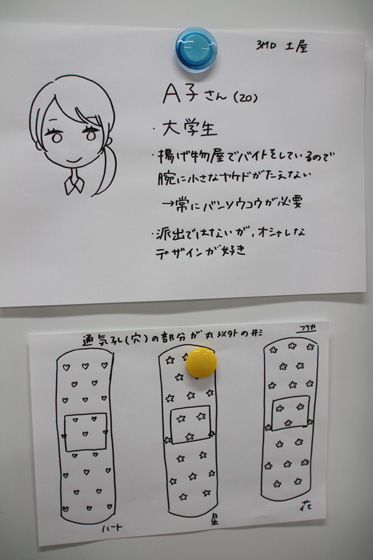 3MD 土屋
A子さん(20)
・大学生
・揚げ物屋でバイトをしているので
腕に小さなヤケドがたえない
→常にバンソウコウが必要
・派出ではないが、オシャレな
デザインが好き
通気孔(穴)の部分が丸以外の形
つちや
ハート
星
花